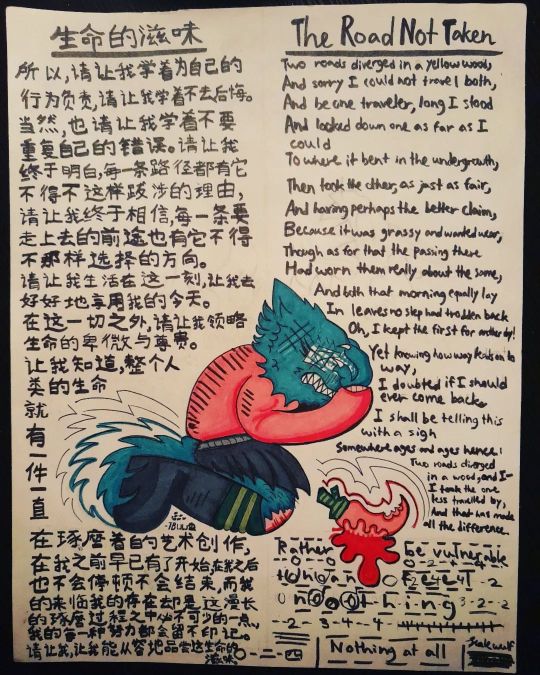 生命的滋味
所以,请让我学着为自己的
行为负责,请让我学着不去后悔。
当然,也请让我学着不要
重复自己的错误。请让我
终于明白,每一条路径都有它
不得不这样跋涉的理由,
请让我终于相信,每一条要
走上去的前途也有它不得
不那样选择的方向。
请让我生活在这一刻,让我去
好好地享用我的今天。
在这一切之外,请让我领略
生命的卑微与尊贵。
让我知道,整个人
类的生命
就
有
一
件
一
直
在琢磨着的艺术创作,
在我之前早已有了开始,在我之后
也不会停顿不会结束,而我
的来临我的存在却是这漫长
的琢磨过程之中必不可少的一点,
我的每一种努力都会留下印记。
请让我,让我能从容地品尝这生命的
滋味。
The Road Not Taken
Two roads diverged in a yellow wood,
And sorry I could not travel both,
And be one traveler, long I stood
And looked down one as far as I
could
To where it bent in the undergrowth,
Then took the other, as just as fair,
And having perhaps the better claim,
Because it was grassy and wanted wear,
Though as for that the passing there
Had worn them really about the same,
And both that morning equally lay
In leaves no step had trodden back
Oh, I kept the first for another day!
Yet knowing how way leads on to
way,
I doubted if I should
ever come back,
I shall be telling this
with a sigh
Somewhere ages and ages hence:
Two roads diverged
in a wood, and I-
I took the one
less travelled by,
And that was made
all the difference.
Rather be vulnerable
than Feel
Nothing at all